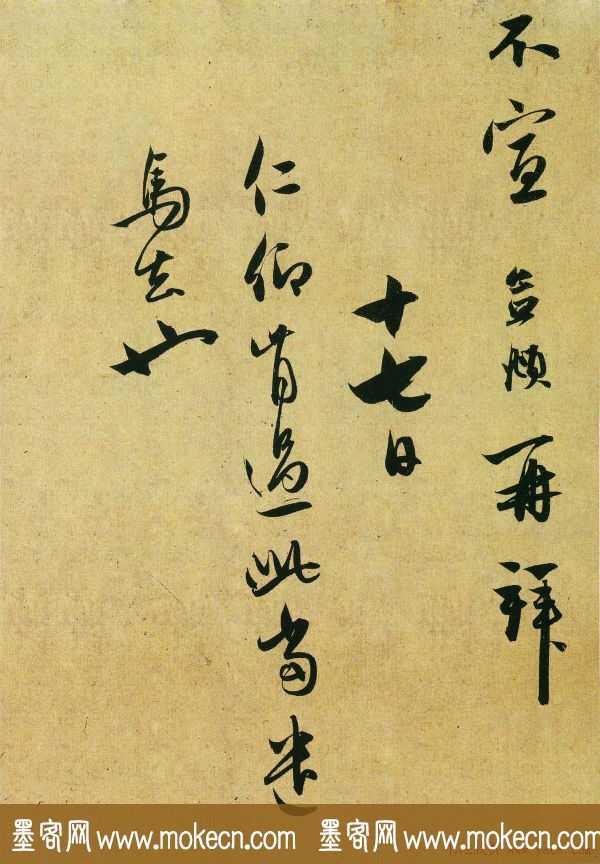 不宣 孟頫再拜
十七日
仁卿肯過此當
馬去也
墨客网 www.mokecn.com 墨客网 www.mokecn.com